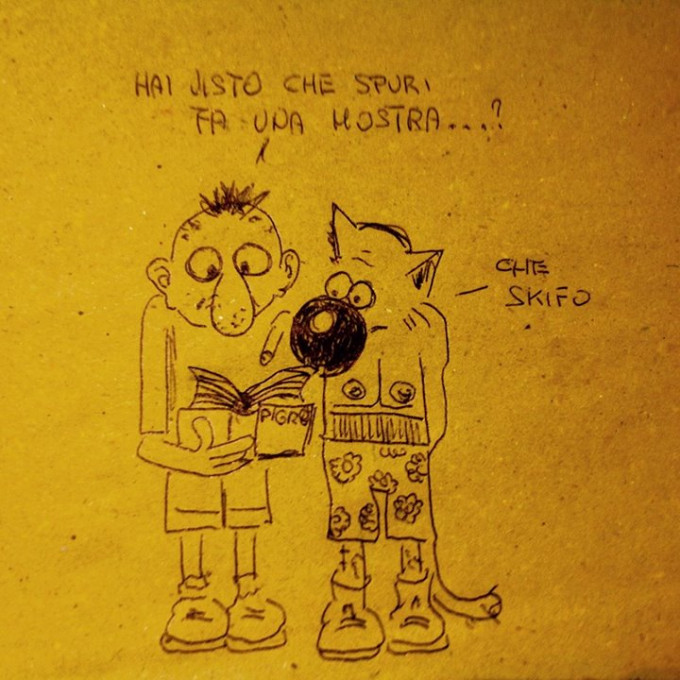 HAI VISTO CHE SPURI
FA UNA MOSTRA....?
CHE
SKIFO
PIGRO